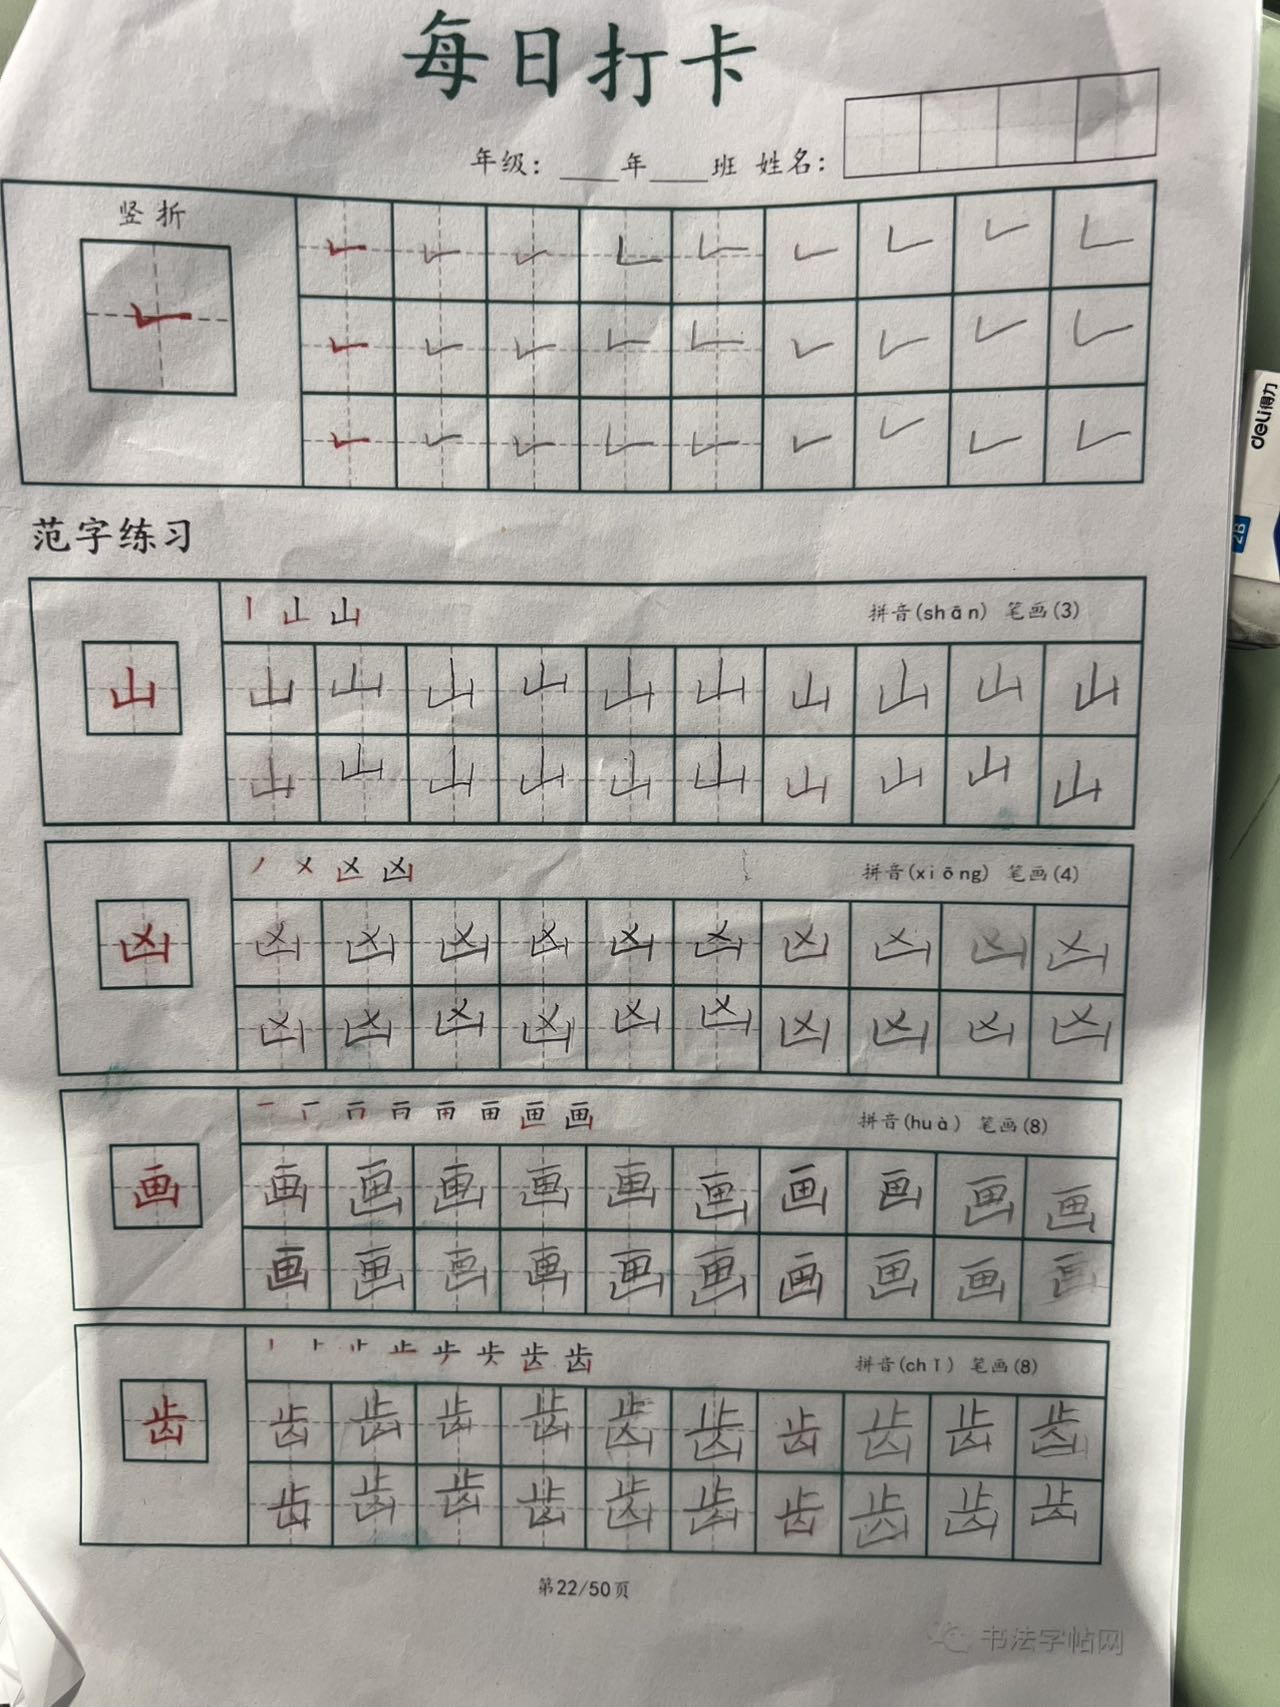 每日打卡
年级：____年____班 姓名：
竖折
范字练习
山 拼音(shān) 笔画(3)
山 山 山 山 山 山 山 山 山 山 山
山 山 山 山 山 山 山 山 山 山
凶 拼音(xiōng) 笔画(4)
凶 凶 凶 凶 凶 凶 凶 凶 凶 凶 凶
凶 凶 凶 凶 凶 凶 凶 凶 凶 凶
画 拼音(huà) 笔画(8)
画 画 画 画 画 画 画 画 画 画 画
画 画 画 画 画 画 画 画 画 画
齿 拼音(chǐ) 笔画(8)
齿 齿 齿 齿 齿 齿 齿 齿 齿 齿 齿
齿 齿 齿 齿 齿 齿 齿 齿 齿 齿
第22/50页
书法字帖网
deli得力
2B